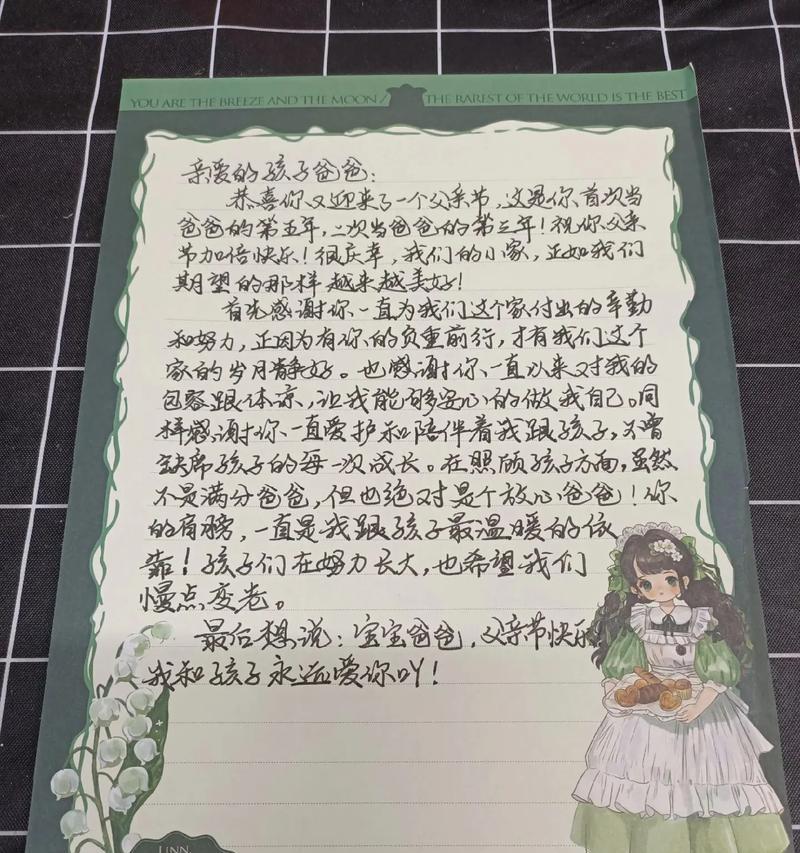 YOU ARE THE BREEZE AND THE MOON / THE RAREST OF THE WORLD IS THE BEST
亲爱的孩子爸爸：
恭喜你又迎来了一个父亲节，这是你首次当
爸爸的第五年，二次当爸爸的第三年！祝你父亲
节加倍快乐！很庆幸，我们的小家，正如我们
期望的那样越来越美好！
首先感谢你一直为我们这个家付出的辛勤
和努力，正因为有你的负重前行，才有我们这个
家的岁月静好。也感谢你一直以来对我的
包容跟体凉，让我能够安心的做我自己。同
样感谢你一直爱护和陪伴着我跟孩子，不曾
缺席孩子的每一次成长。在照顾孩子方面，虽然
不是满分爸爸，但也绝对是个放心爸爸！你
的肩膀，一直是我跟孩子最温暖的依
靠！孩子们在努力长大，也希望我们
慢点变老。
最后想说：宝宝爸爸，父亲节快乐！
我和孩子永远爱你吖！
LINN